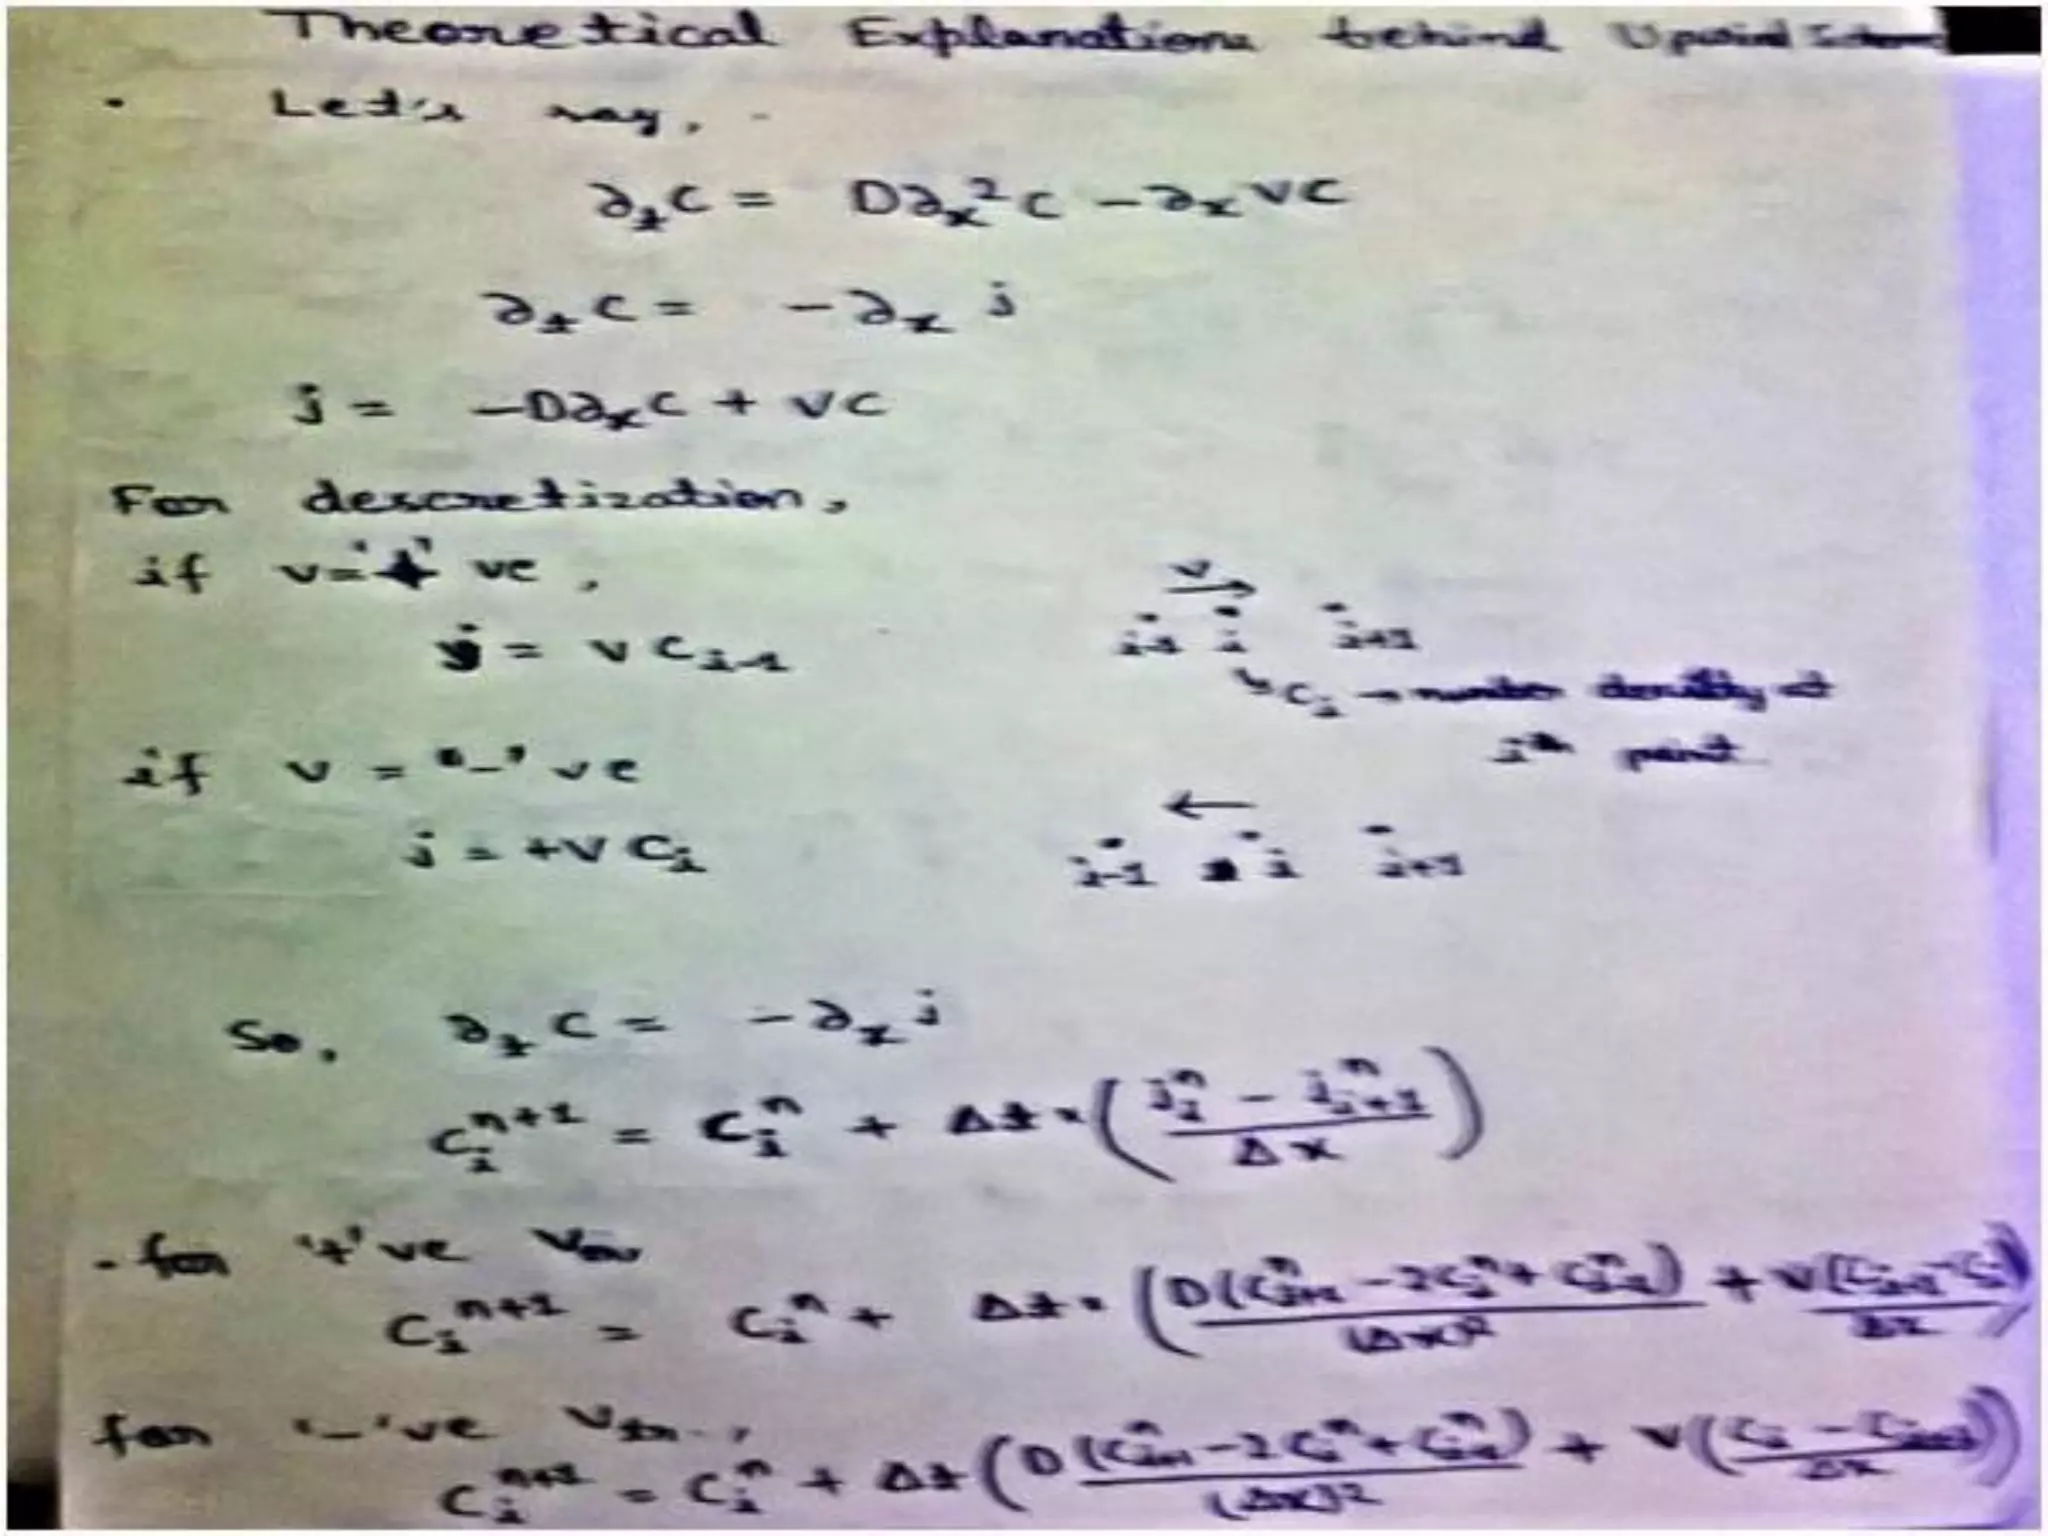 Theoretical Explanation behind Upwind Scheme
• Let's say,
∂ₜC = D∂ₓ²C - ∂ₓVC
∂ₜC = -∂ₓ j
j = -D∂ₓC + VC
For descretization,
if v = '+' ve,
j = v C_{i-1}
v →
i-1 i i+1
↳ C_i → number density at
i^{th} point
if v = '-' ve
j = +V C_i
←
i-1 i i+1
So, ∂ₜC = -∂ₓ j
C_i^{n+1} = C_i^n + Δt × ( (j_i^n - j_{i+1}^n) / Δx )
- for '+'ve
C_i^{n+1} = C_i^n + Δt × ( D(C_{i+1}^n - 2C_i^n + C_{i-1}^n) / (Δx)² + V(C_{i-1} - C_i) / Δx )
for '-'ve
C_i^{n+1} = C_i^n + Δt ( D(C_{i+1}^n - 2C_i^n + C_{i-1}^n) / (Δx)² + V(C_i - C_{i+1}) / Δx )